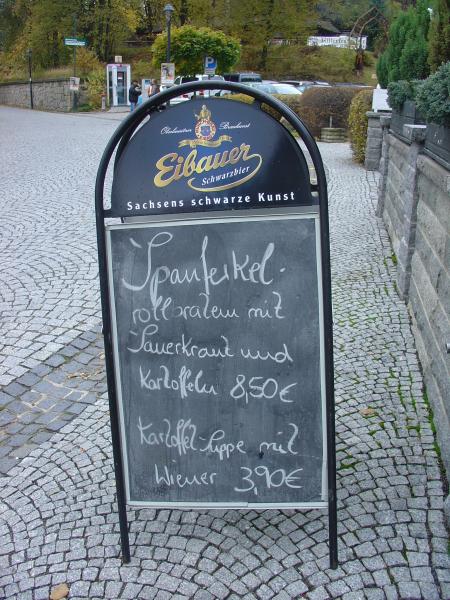 Eibauer
Schwarzbier
Sachsens schwarze Kunst
Spanferkel-
rollbraten mit
Sauerkraut und
Kartoffeln 8,50€
Kartoffel-Suppe mit
Wiener 3,90€
P